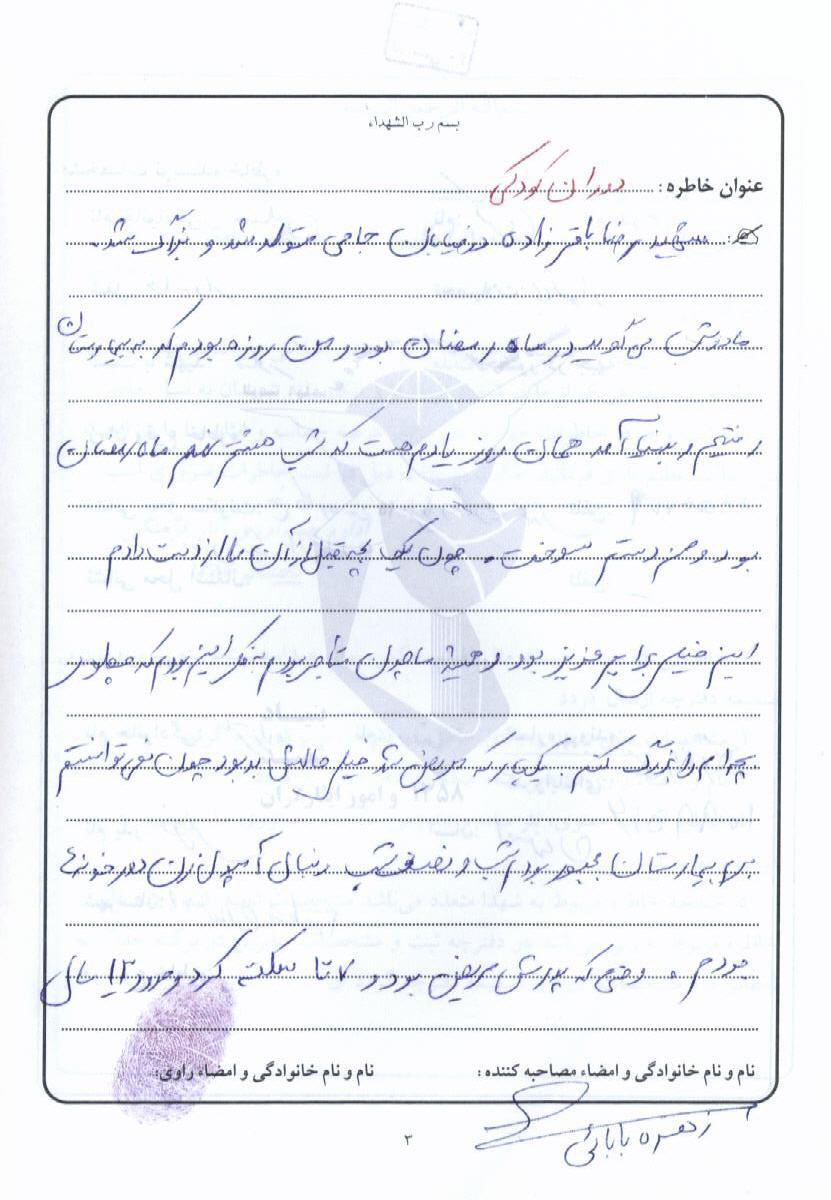 بسم رب الشهداء
عنوان خاطره: دوران کودکی
شهید رضا باقرزاده در خیابان جامی متولد شد و بزرگ شد.
مادرش می گوید در ماه رمضان بود و من روزه بودم که به بیمارستان
رفتیم و بدنیا آمد همان روز یادم هست که شب هشتم نهم ماه رمضان
بود و من دستم سوخت. چون یک بچه قبل از آن را از دست دادم
این خیلی برایم عزیز بود و همیشه ما چون مستاجر بودم به فکر این بودم که چطوری
بچه ام را بزرگ کنم. یکبار که مریض شد خیلی حالش بد بود چون نمی توانستم
ببرم بیمارستان مجبور بودم شب و نصف شب دنبال آمپول زن در خونه
بودم. وقتی که پدرش مریض بود و ۷ تا سکته کرد و حدود ۱۲ سال
نام و نام خانوادگی و امضاء مصاحبه کننده:
نام و نام خانوادگی و امضاء راوی:
بابائی
۳